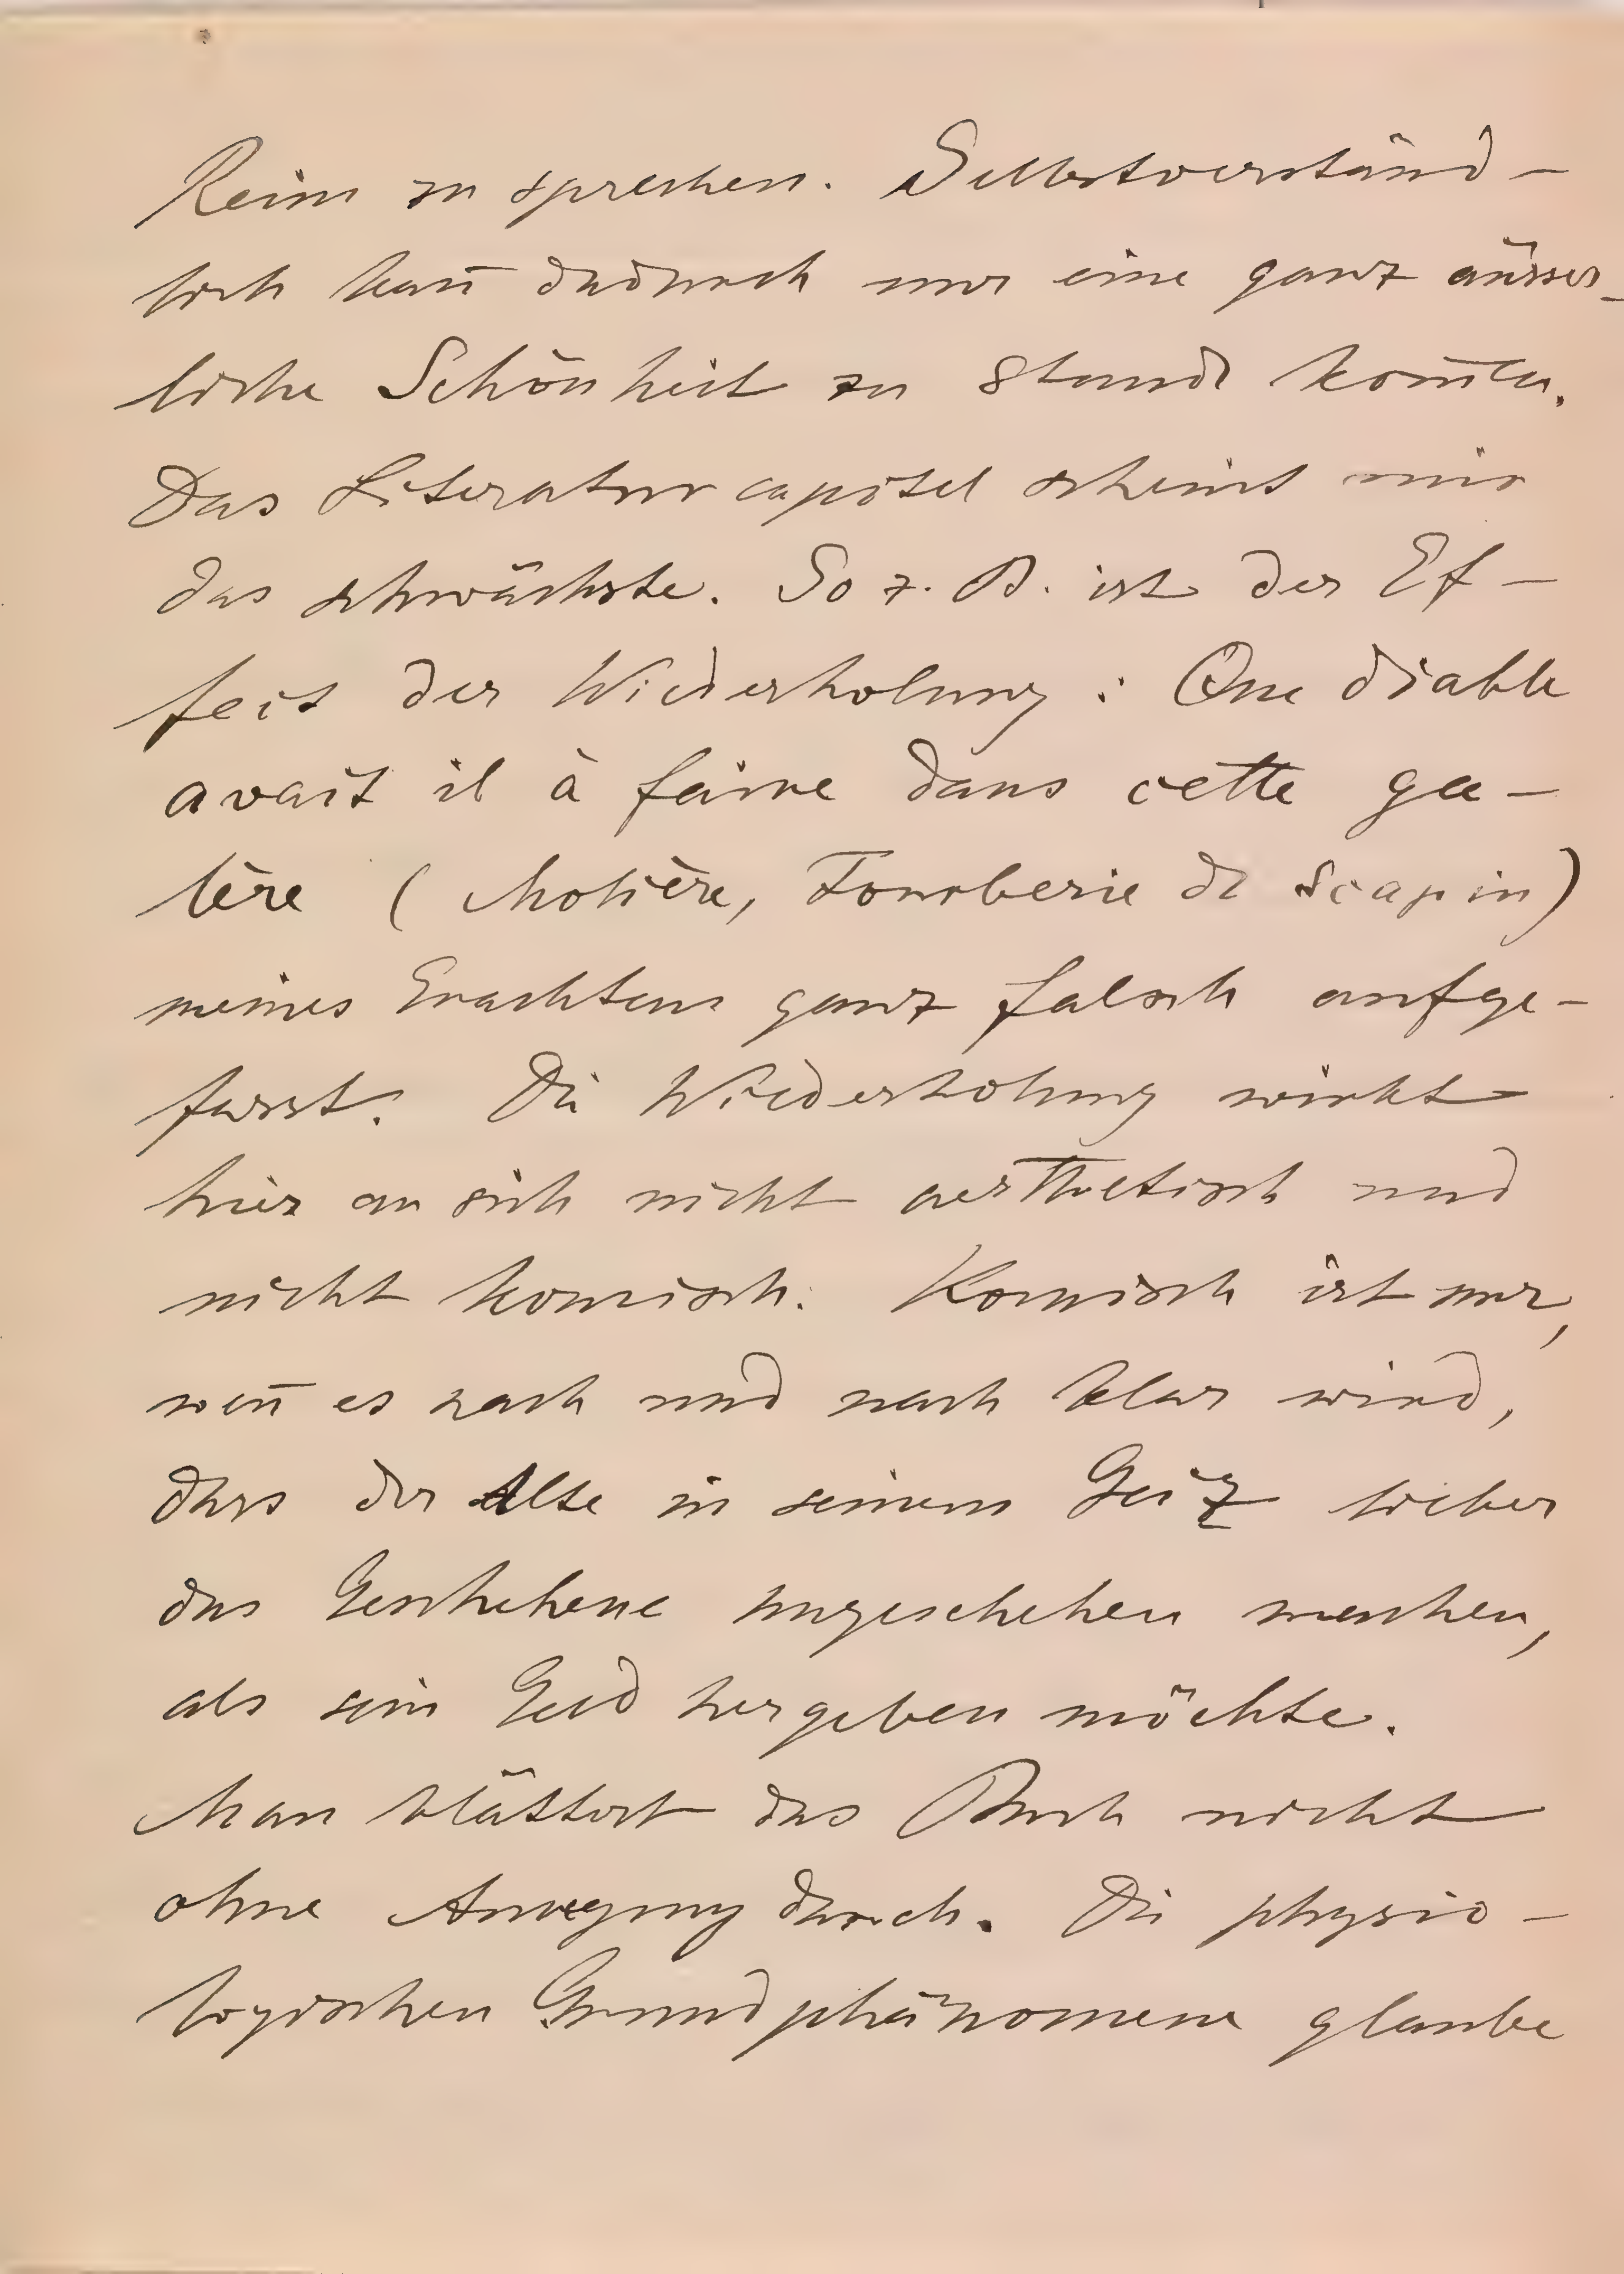 Reim zu sprechen. Selbstverständ-
lich kan̄ dadurch nur eine ganz äusser-
liche Schönheit zu Stande kom̄en.
Das Literaturcapitel scheint mir
das schwächste. So z. B. ist der Ef-
fect der Wiederholung: Que diable
avait il à faire dans cette ga-
lère (Molière, Fourberie de Scapin)
meines Erachtens ganz falsch aufge-
fasst. Die Wiederholung wirkt
hier an sich nicht aesthetisch und
nicht komisch. Komisch ist nur,
wen̄ es nach und nach klar wird,
dass der Alte in seinem Geiz lieber
das Geschehene ungeschehen machen,
als sein Geld hergeben möchte.
Man blättert das Buch nicht
ohne Anregung durch. Die physio-
logischen Grundphänomene glaube